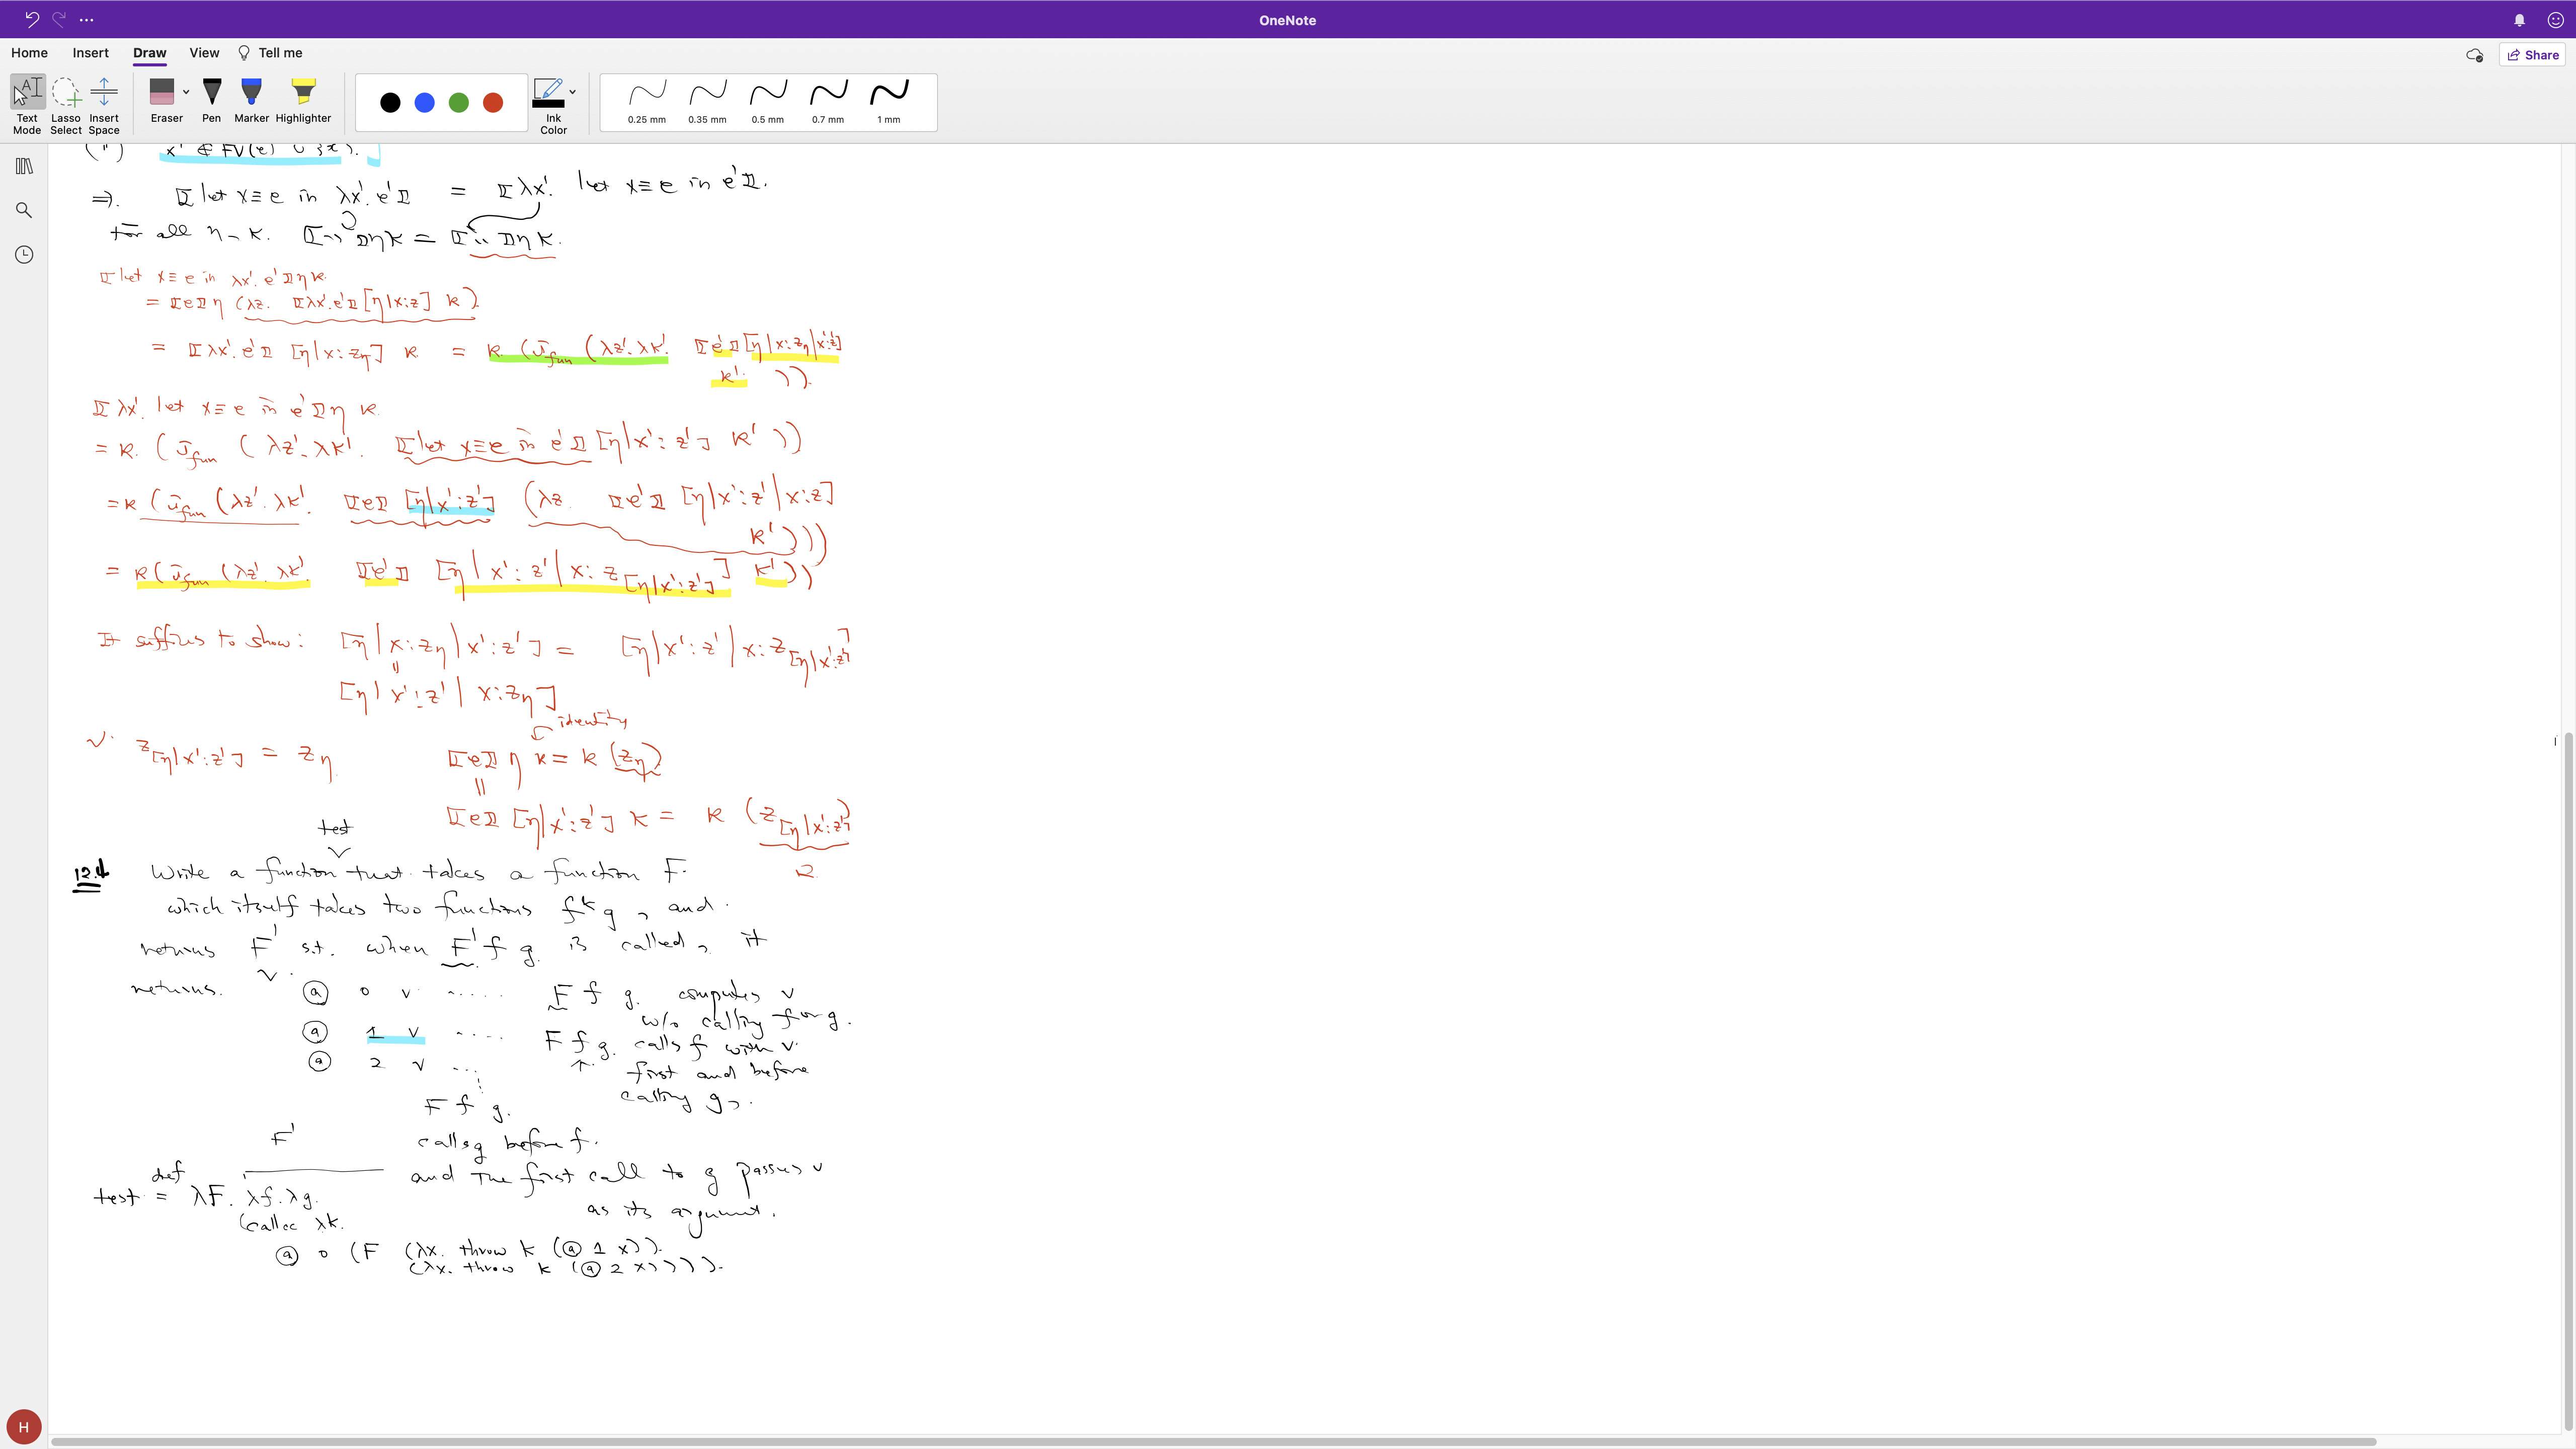 OneNote
Home Insert Draw View Tell me
Share
Text Mode
Lasso Select
Insert Space
Eraser
Pen
Marker
Highlighter
Ink Color
0.25 mm
0.35 mm
0.5 mm
0.7 mm
1 mm
x' ∉ FV(e) ∪ {x}.
⇒). ⟦let x≡e in λx'. e'⟧ = ⟦λx'. let x≡e in e'⟧.
For all η, κ. ⟦…⟧ηκ = ⟦…⟧ηκ.
⟦let x≡e in λx'. e'⟧ηκ
= ⟦e⟧η (λz. ⟦λx'.e'⟧[η|x:z] κ)
= ⟦λx'.e'⟧ [η|x:zη] κ = κ (J_fun (λz'.λκ'. ⟦e'⟧[η|x:zη|x':z']
κ' )).
⟦λx'. let x≡e in e'⟧η κ
= κ. (J_fun ( λz'.λκ'. ⟦let x≡e in e'⟧ [η|x':z'] κ' ))
= κ (J_fun (λz'.λκ'. ⟦e⟧ [η|x':z'] (λz. ⟦e'⟧ [η|x':z'|x:z]
κ')))
= κ(J_fun (λz'.λκ'. ⟦e'⟧ [η|x':z'|x:z[η|x':z']] κ'))
It suffices to show: [η|x:zη|x':z'] = [η|x':z'|x:z[η|x':z']]
||
[η|x':z'|x:zη]
identity
z[η|x':z'] = zη
⟦e⟧ η κ = κ (zη)
||
⟦e⟧ [η|x':z'] κ = κ (z[η|x':z'])
test
12.4 Write a function that takes a function F.
which itself takes two functions f & g, and
returns F' s.t. when F' f g is called, it
returns.
@ 0 v ..... F f g. computes v
w/o calling f or g.
@ 1 v .... F f g. calls f with v.
@ 2 v ... first and before
calling g,.
F f g.
F' calls g before f.
and the first call to g passes v
as its argument.
def
test = λF. λf.λg.
(callcc λk.
@ 0 (F (λx. throw k (@ 1 x)).
(λx. throw k (@ 2 x)))).
H